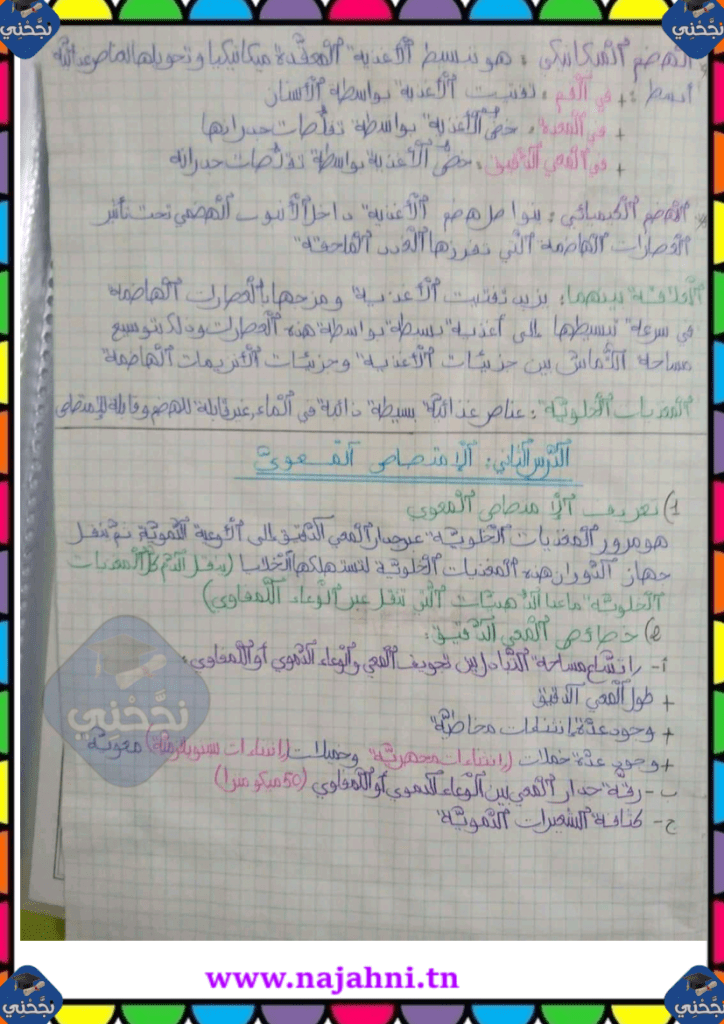 نجّحْني
نجّحْني
الهضم الميكانيكي : هو تبسيط الأغذية المعقدة ميكانيكيا وتحويلها لعناصر غذائية
أبسط : + في الفم : تفتيت الأغذية بواسطة الأسنان
+ في المعدة : خضّ الأغذية بواسطة تقلّصات جدرانها
+ في المعي الدّقيق : خضّ الأغذية بواسطة تقلّصات جدرانه
الهضم الكيميائي : يتواصل هضم الأغذية داخل الأنبوب الهضمي تحت تأثير
العصارات الهاضمة الّتي تفرزها الغدد الملحقة
العلاقة بينهما: يزيد تفتيت الأغذية ومزجها بالعصارات الهاضمة
في سرعة تبسيطها إلى أغذية بسيطة بواسطة هذه العصارات وذلك بتوسيع
مساحة التّماسّ بين جزيئات الأغذية وجزيئات الأنزيمات الهاضمة
المغذيات الخلويّة : عناصر غذائيّة بسيطة ذائبة في الماء، غير قابلة للهضم وقابلة للإمتصاص
الدّرس الثاني: الإمتصاص المعويّ
1) تعريف الإمتصاص المعوي
هو مرور المغذيات الخلويّة عبر جدار المعي الدّقيق إلى الأوعية الدّمويّة ثمّ تنقل
جهاز الدّوران هذه المغذيات الخلوية لتستهلكها الخلايا (ينقل الدّم كلّ المغذيات
الخلويّة ماعدا الدّهنيّات الّتي تنقل عبر الوعاء اللّمفاوي)
2) خصائص المعي الدّقيق:
أ- إتّساع مساحة التّبادل بين تجويف المعي والوعاء الدّموي أو اللّمفاوي:
+ طول المعي الدّقيق
+ وجود عدّة إنثناءات مخاطيّة
+ وجود عدّة خملات (إنثناءات مجهريّة) وخميلات (إنثناءات سيتوبلازميّة) معويّة
ب- رقّة جدار المعي بين الوعاء الدّموي أو اللّمفاوي (50 ميكومترا)
ج- كثافة الشعيرات الدّمويّة
نجّحْني
www.najahni.tn
نجّحْني
نجّحْني